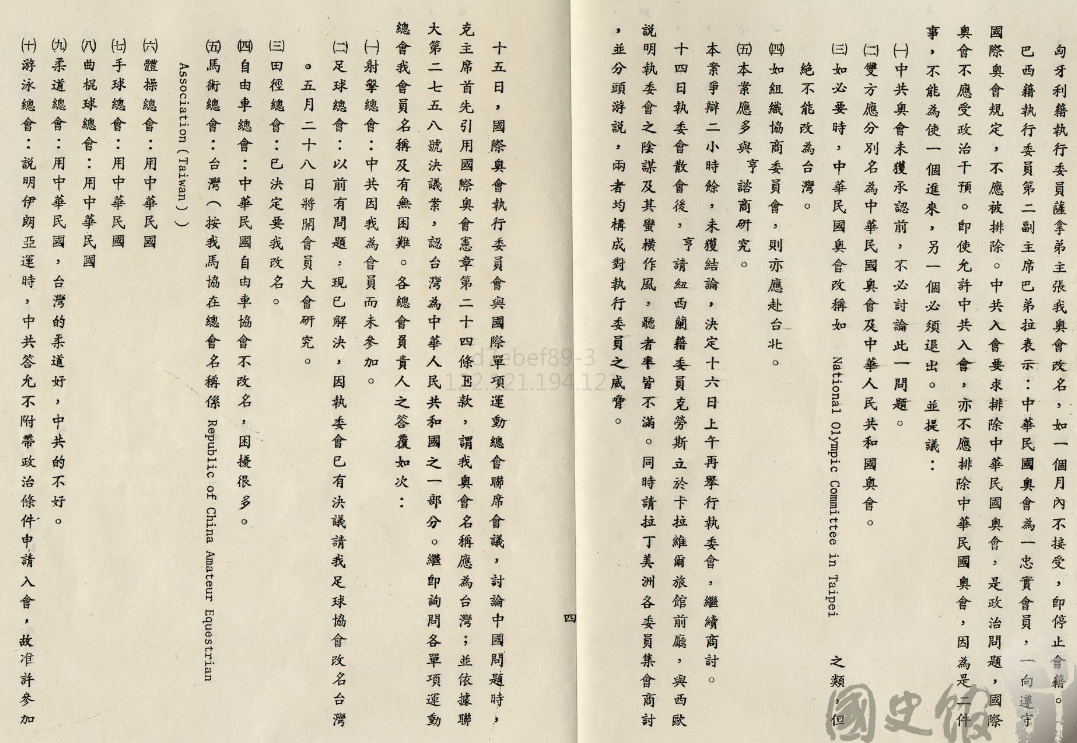 匈牙利籍執行委員薩拿弟主張我奧會改名，如一個月內不接受，即停止會籍。
巴西籍執行委員第二副主席巴弟拉表示：中華民國奧會為一忠實會員，一向遵守
國際奧會規定，不應被排除。中共入會要求排除中華民國奧會，是政治問題，國際
奧會不應受政治干預。即使允許中共入會，亦不應排除中華民國奧會，因為是二件
事，不能為使一個進來，另一個必須退出。並提議：
㈠中共奧會未獲承認前，不必討論此一問題。
㈡雙方應分別名為中華民國奧會及中華人民共和國奧會。
㈢如必要時，中華民國奧會改稱如 National Olympic Committee in Taipei 之類，但
絕不能改為台灣。
㈣如組織協商委員會，則亦應赴台北。
㈤本案應多與亨諮商研究。
本案爭辯二小時餘，未獲結論，決定十六日上午再舉行執委會，繼續商討。
十四日執委會散會後，亨請紐西蘭籍委員克勞斯立於卡拉維爾旅館前廳，與西歐
說明執委會之陰謀及其蠻橫作風，聽者率皆不滿。同時請拉丁美洲各委員集會商討
，並分頭游說，兩者均構成對執行委員之威脅。
四
十五日，國際奧會執行委員會與國際單項運動總會聯席會議，討論中國問題時，
克主席首先引用國際奧會憲章第二十四條E款，謂我奧會名稱應為台灣；並依據聯
大第二七五八號決議案，認台灣為中華人民共和國之一部分。繼即詢問各單項運動
總會我會員名稱及有無困難。各總會負責人之答覆如次：
㈠射擊總會：中共因我為會員而未參加。
㈡足球總會：以前有問題，現已解決，因執委會已有決議請我足球協會改名台灣
。五月二十八日將開會員大會研究。
㈢田徑總會：已決定要我改名。
㈣自由車總會：中華民國自由車協會不改名，困擾很多。
㈤馬術總會：台灣（按我馬協在總會名稱係 Republic of China Amateur Equestrian
Association (Taiwan)）
㈥體操總會：用中華民國
㈦手球總會：用中華民國
㈧曲棍球總會：用中華民國
㈨柔道總會：用中華民國，台灣的柔道好，中共的不好。
㈩游泳總會：說明伊朗亞運時，中共答允不附帶政治條件申請入會，故准許參加
國史館